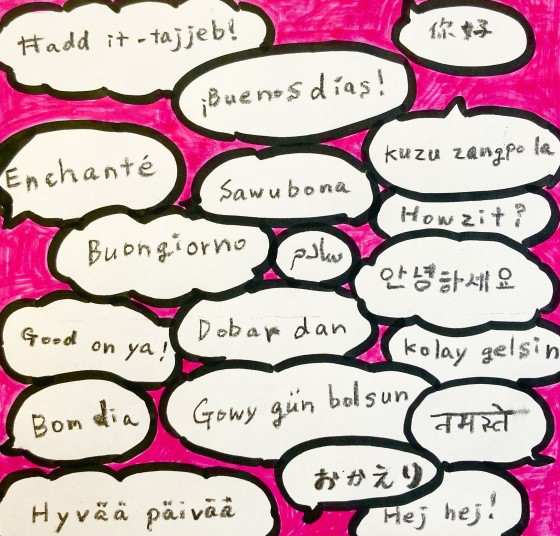 Ħadd it-tajjeb!
你好
¡Buenos días!
Enchanté
kuzu zangpo la
Sawubona
Howzit?
Buongiorno
سلام
안녕하세요
Good on ya!
Dobar dan
kolay gelsin
Bom dia
Gowy gün bolsun
नमस्ते
おかえり
Hyvää päivää
Hej hej!